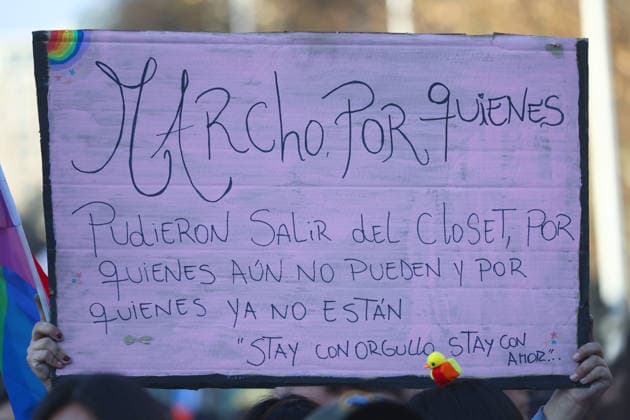 MARCho. POR quiENES
PUdiERON SALIR dEL CloSET, POR
quiENES AÚN NO PUEDEN Y POR
quiENES YA NO ESTÁN
"STAY CON ORGULLO STAY CON
AMOR"...